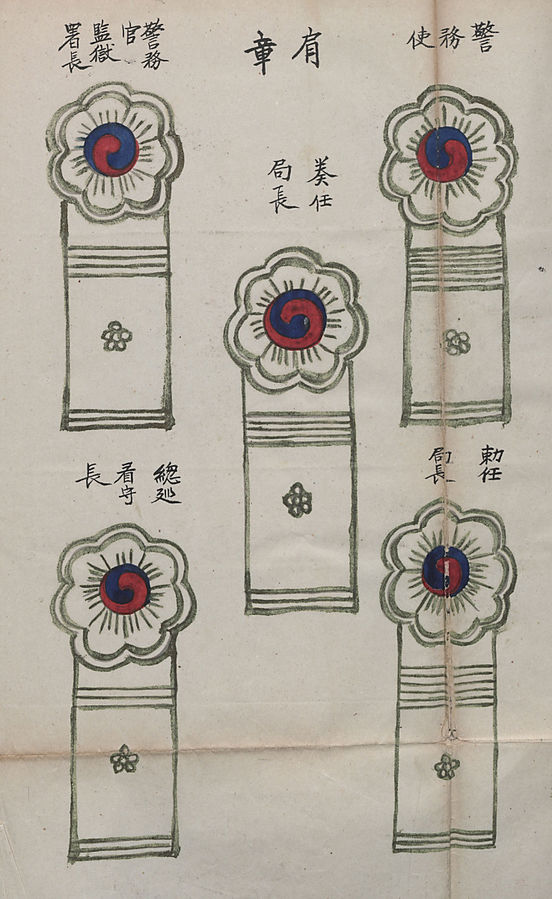 肩章
警務使
警務官
監獄署長
奏任局長
勅任局長
總巡
看守長